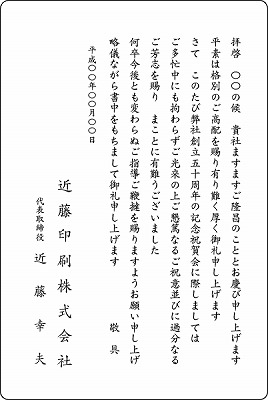 拝啓　〇〇の候　貴社ますますご隆昌のこととお慶び申し上げます
平素は格別のご高配を賜り有り難く厚く御礼申し上げます
さて　このたび弊社創立五十周年の記念祝賀会に際しましては
ご多忙中にも拘わらずご光来の上ご懇篤なるご祝意並びに過分なる
ご芳志を賜り　まことに有難うございました
何卒今後とも変わらぬご指導ご鞭撻を賜りますようお願い申し上げ
略儀ながら書中をもちまして御礼申し上げます　敬具
平成〇〇年〇〇月〇〇日
近藤印刷株式会社
代表取締役　近藤幸夫